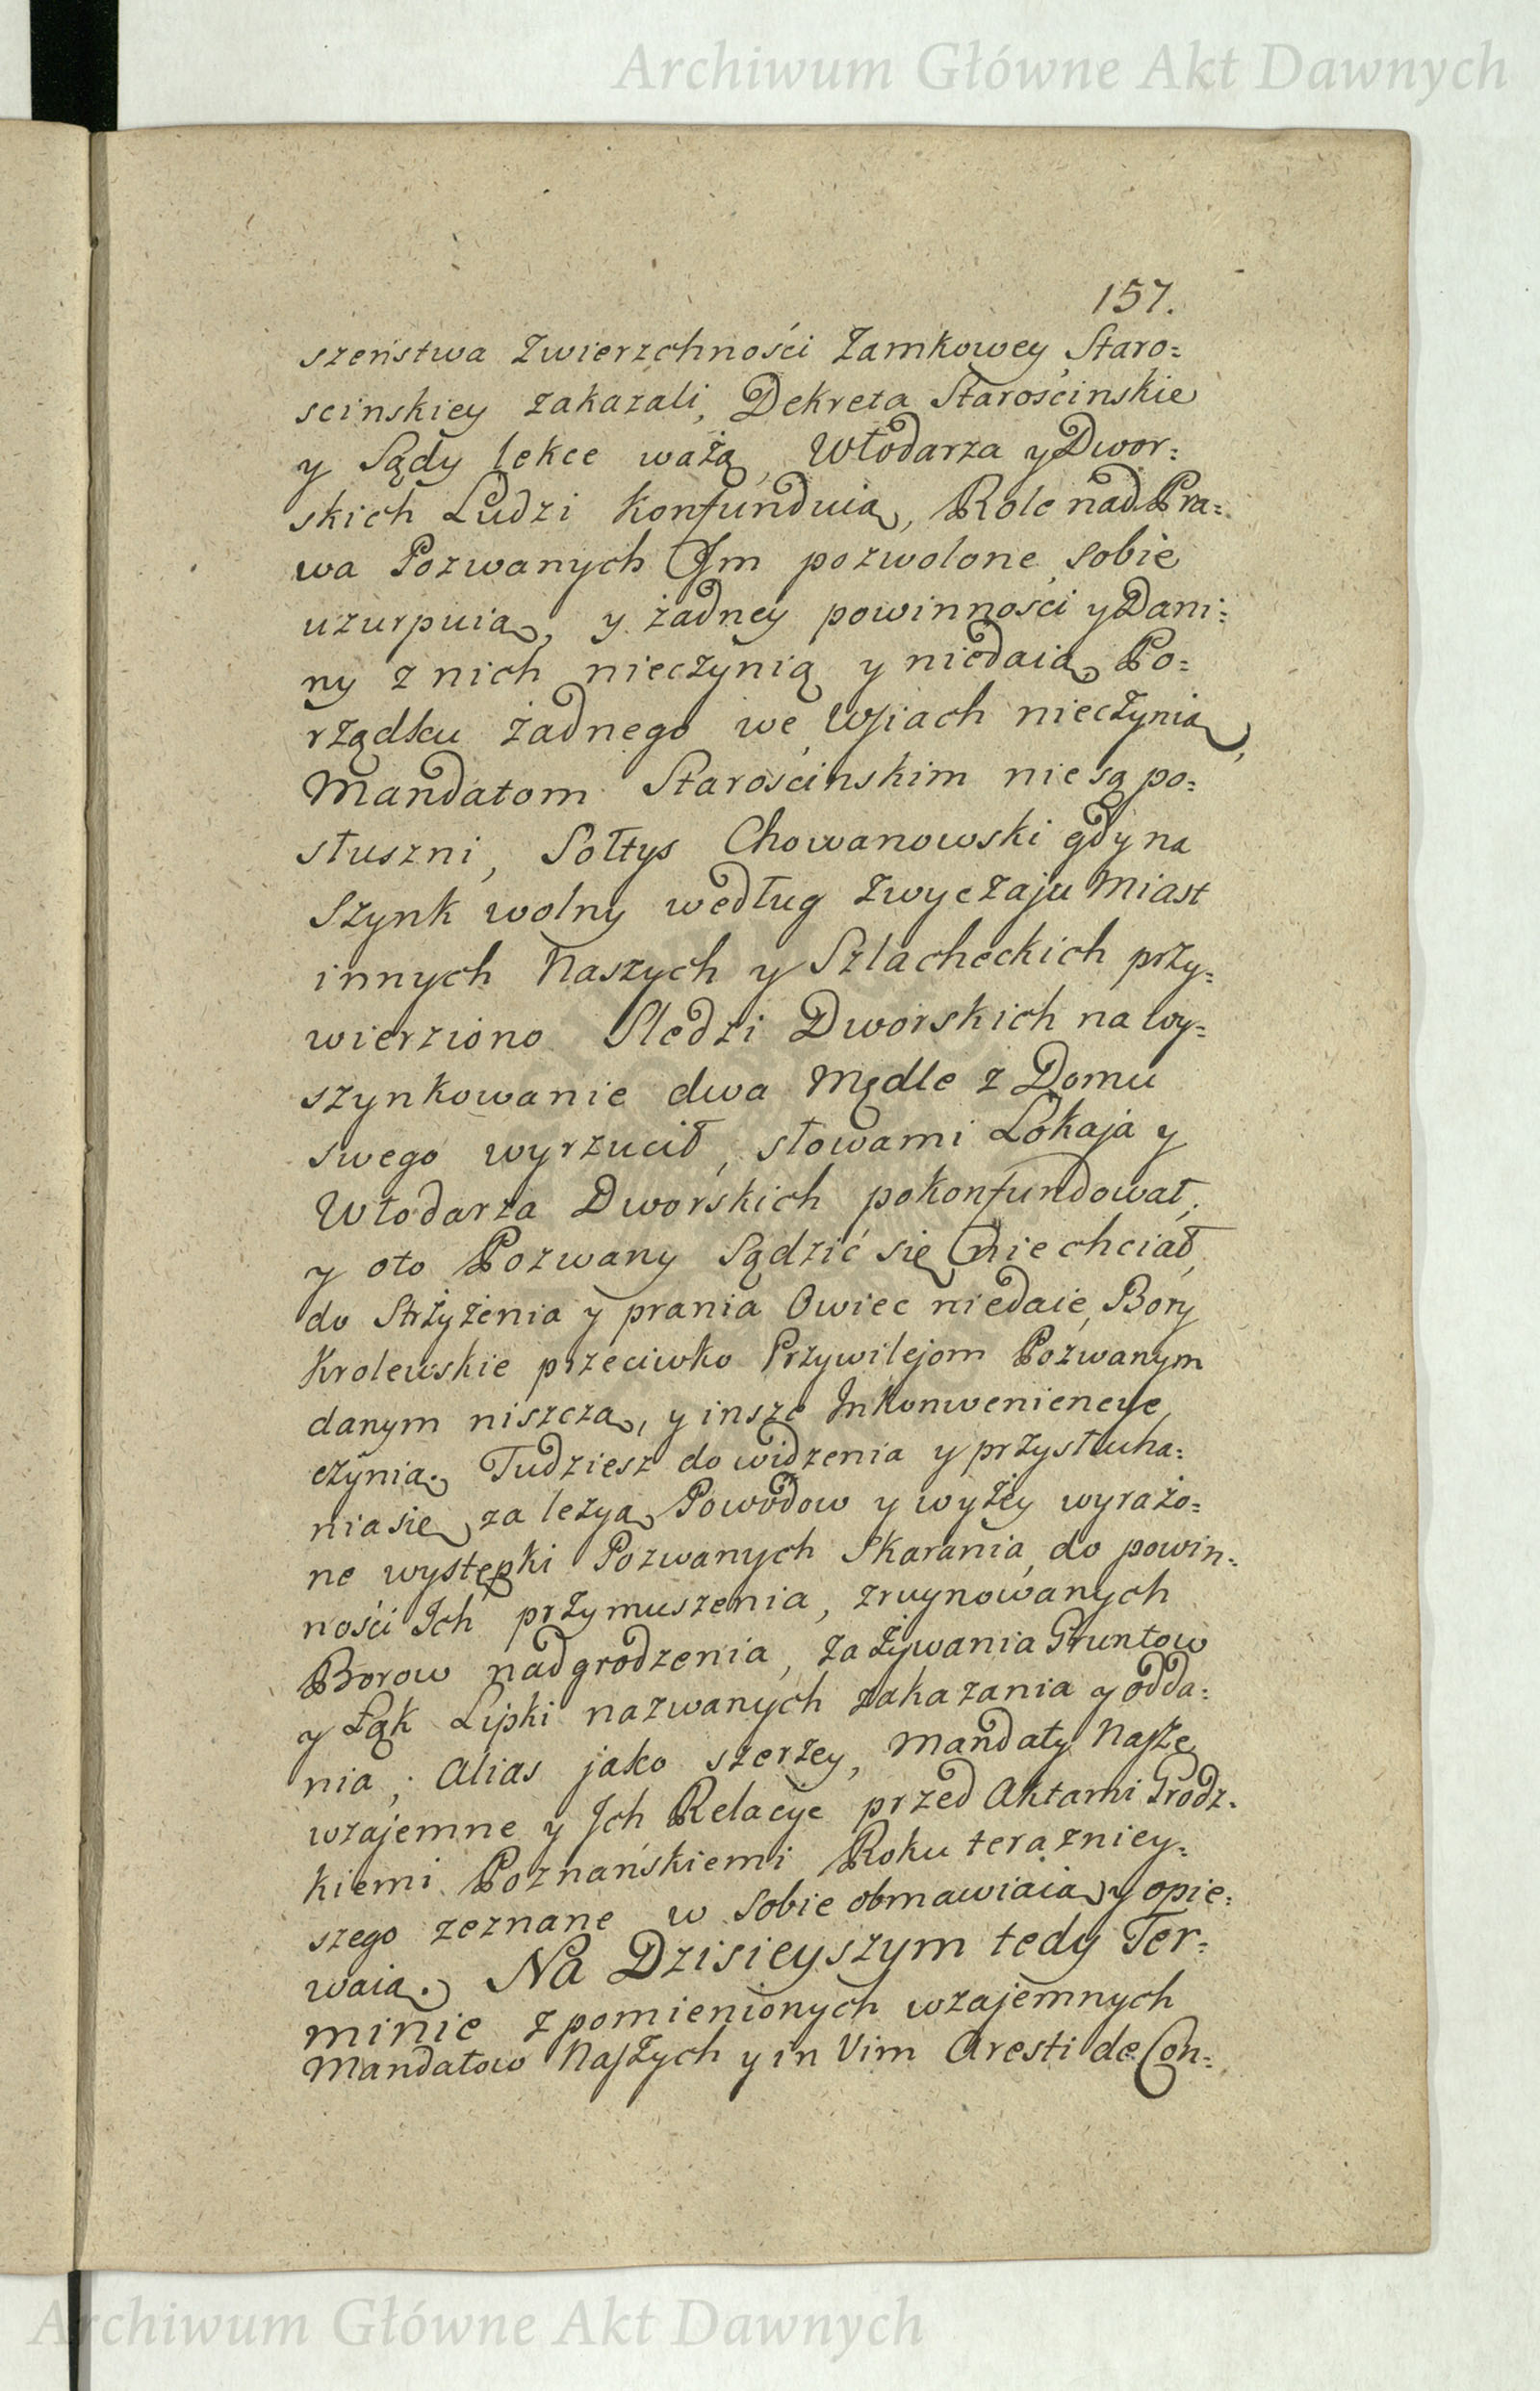 Archiwum Główne Akt Dawnych
157.
szeństwa Zwierzchności Zamkowey Staro=
scinskiey zakazali, Dekreta Starościnskie
y Sądy lekce ważą, Włodarza y Dwor=
skich Ludzi konfunduią, Role nad Pra=
wa Pozwanych Im pozwolone sobie
uzurpuią, y żadney powinności y Dani=
ny z nich nieczynią y niedaią, Po=
rządku żadnego we Wsiach nieczynią,
Mandatom Starościnskim nie są po=
słuszni, Sołtys Chowanowski gdy na
Szynk wolny według zwyczaju Miast
innych Naszych y Szlacheckich przy=
wierziono Sledzi Dworskich na wy=
szynkowanie dwa Mędle z Domu
swego wyrzucił, słowami Lokaja y
Włodarza Dworskich pokonfundował,
y oto Pozwany Sądzić się niechciał,
do Strzyżenia y prania Owiec niedaie, Bory
Krolewskie przeciwko Przywilejom Pozwanym
danym niszczą, y insze Inkonweniencye
czynią. Tudziesz do widzenia y przysłucha=
nia się, za lezyą Powodow y wyżey wyrażo=
ne występki Pozwanych Skarania, do powin=
ności Ich przymuszenia, zruynowanych
Borow nadgrodzenia, zażywania Gruntow
y Łąk Lipki nazwanych zakazania y odda=
nia, Alias jako szerzey, Mandaty Nasze
wzajemne y Ich Relacye przed Aktami Grodz=
kiemi Poznańskiemi Roku terazniey=
szego zeznane w sobie obmawiaią y opie=
waią. Na Dzisieyszym tedy Ter=
minie z pomienionych wzajemnych
Mandatow Naszych y in Vim Aresti de Con=
Archiwum Główne Akt Dawnych